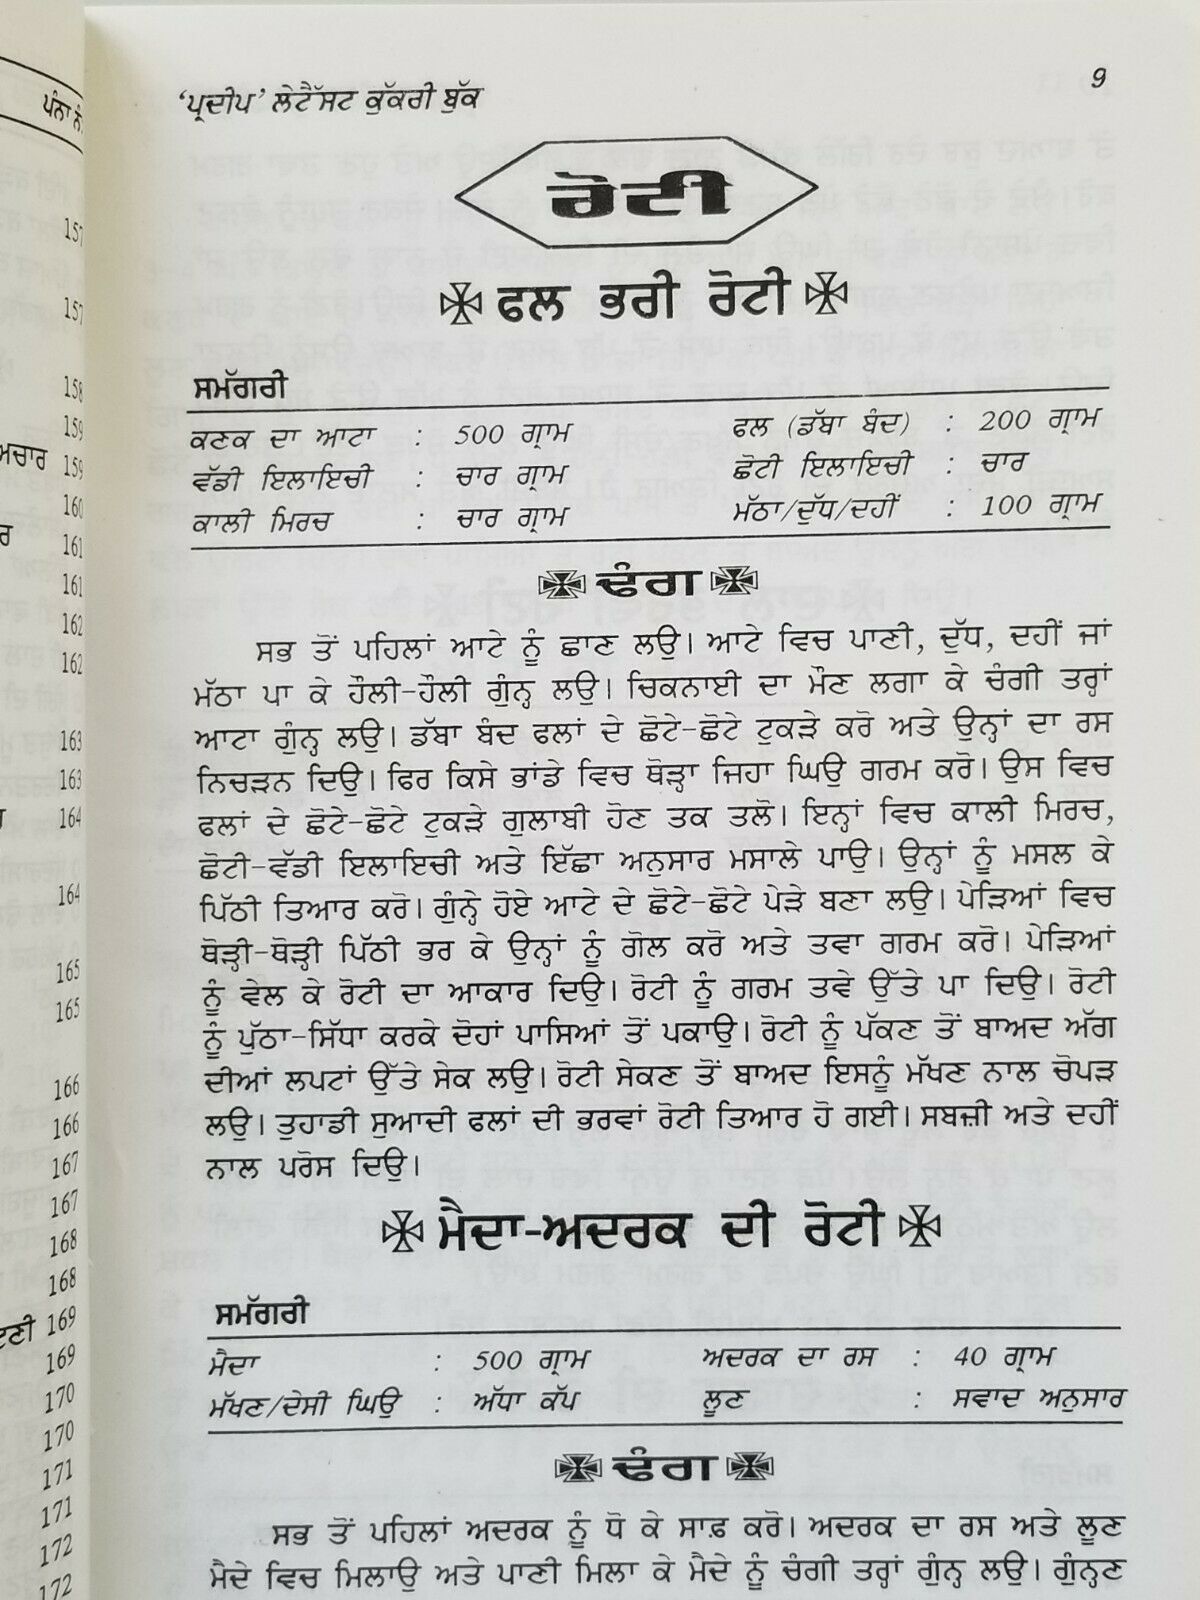 ਪੰਨਾ ਨੰ.
157
157
158
159
ਅਚਾਰ 159
160
161
161
162
162
163
163
164
164
165
165
166
166
167
167
168
168
169
169
170
170
171
171
172
172
'ਪ੍ਰਦੀਪ' ਲੇਟੈੱਸਟ ਕੁੱਕਰੀ ਬੁੱਕ 9
ਰੋਟੀ
ਫਲ ਭਰੀ ਰੋਟੀ
ਸਮੱਗਰੀ
ਕਣਕ ਦਾ ਆਟਾ : 500 ਗ੍ਰਾਮ ਫਲ (ਡੱਬਾ ਬੰਦ) : 200 ਗ੍ਰਾਮ
ਵੱਡੀ ਇਲਾਇਚੀ : ਚਾਰ ਗ੍ਰਾਮ ਛੋਟੀ ਇਲਾਇਚੀ : ਚਾਰ
ਕਾਲੀ ਮਿਰਚ : ਚਾਰ ਗ੍ਰਾਮ ਮੱਠਾ/ਦੁੱਧ/ਦਹੀਂ : 100 ਗ੍ਰਾਮ
ਢੰਗ
ਸਭ ਤੋਂ ਪਹਿਲਾਂ ਆਟੇ ਨੂੰ ਛਾਣ ਲਉ। ਆਟੇ ਵਿਚ ਪਾਣੀ, ਦੁੱਧ, ਦਹੀਂ ਜਾਂ
ਮੱਠਾ ਪਾ ਕੇ ਹੌਲੀ-ਹੌਲੀ ਗੁੰਨ੍ਹ ਲਉ। ਚਿਕਨਾਈ ਦਾ ਮੌਣ ਲਗਾ ਕੇ ਚੰਗੀ ਤਰ੍ਹਾਂ
ਆਟਾ ਗੁੰਨ੍ਹ ਲਉ। ਡੱਬਾ ਬੰਦ ਫਲਾਂ ਦੇ ਛੋਟੇ-ਛੋਟੇ ਟੁਕੜੇ ਕਰੋ ਅਤੇ ਉਨ੍ਹਾਂ ਦਾ ਰਸ
ਨਿਚੜਨ ਦਿਉ। ਫਿਰ ਕਿਸੇ ਭਾਂਡੇ ਵਿਚ ਥੋੜ੍ਹਾ ਜਿਹਾ ਘਿਉ ਗਰਮ ਕਰੋ। ਉਸ ਵਿਚ
ਫਲਾਂ ਦੇ ਛੋਟੇ-ਛੋਟੇ ਟੁਕੜੇ ਗੁਲਾਬੀ ਹੋਣ ਤਕ ਤਲੋ। ਇਨ੍ਹਾਂ ਵਿਚ ਕਾਲੀ ਮਿਰਚ,
ਛੋਟੀ-ਵੱਡੀ ਇਲਾਇਚੀ ਅਤੇ ਇੱਛਾ ਅਨੁਸਾਰ ਮਸਾਲੇ ਪਾਉ। ਉਨ੍ਹਾਂ ਨੂੰ ਮਸਲ ਕੇ
ਪਿੱਠੀ ਤਿਆਰ ਕਰੋ। ਗੁੰਨ੍ਹੇ ਹੋਏ ਆਟੇ ਦੇ ਛੋਟੇ-ਛੋਟੇ ਪੇੜੇ ਬਣਾ ਲਉ। ਪੇੜਿਆਂ ਵਿਚ
ਥੋੜ੍ਹੀ-ਥੋੜ੍ਹੀ ਪਿੱਠੀ ਭਰ ਕੇ ਉਨ੍ਹਾਂ ਨੂੰ ਗੋਲ ਕਰੋ ਅਤੇ ਤਵਾ ਗਰਮ ਕਰੋ। ਪੇੜਿਆਂ
ਨੂੰ ਵੇਲ ਕੇ ਰੋਟੀ ਦਾ ਆਕਾਰ ਦਿਉ। ਰੋਟੀ ਨੂੰ ਗਰਮ ਤਵੇ ਉੱਤੇ ਪਾ ਦਿਉ। ਰੋਟੀ
ਨੂੰ ਪੁੱਠਾ-ਸਿੱਧਾ ਕਰਕੇ ਦੋਹਾਂ ਪਾਸਿਆਂ ਤੋਂ ਪਕਾਉ। ਰੋਟੀ ਨੂੰ ਪੱਕਣ ਤੋਂ ਬਾਅਦ ਅੱਗ
ਦੀਆਂ ਲਪਟਾਂ ਉੱਤੇ ਸੇਕ ਲਉ। ਰੋਟੀ ਸੇਕਣ ਤੋਂ ਬਾਅਦ ਇਸਨੂੰ ਮੱਖਣ ਨਾਲ ਚੋਪੜ
ਲਉ। ਤੁਹਾਡੀ ਸੁਆਦੀ ਫਲਾਂ ਦੀ ਭਰਵਾਂ ਰੋਟੀ ਤਿਆਰ ਹੋ ਗਈ। ਸਬਜ਼ੀ ਅਤੇ ਦਹੀਂ
ਨਾਲ ਪਰੋਸ ਦਿਉ।
ਮੈਦਾ-ਅਦਰਕ ਦੀ ਰੋਟੀ
ਸਮੱਗਰੀ
ਮੈਦਾ : 500 ਗ੍ਰਾਮ ਅਦਰਕ ਦਾ ਰਸ : 40 ਗ੍ਰਾਮ
ਮੱਖਣ/ਦੇਸੀ ਘਿਉ : ਅੱਧਾ ਕੱਪ ਲੂਣ : ਸਵਾਦ ਅਨੁਸਾਰ
ਢੰਗ
ਸਭ ਤੋਂ ਪਹਿਲਾਂ ਅਦਰਕ ਨੂੰ ਧੋ ਕੇ ਸਾਫ਼ ਕਰੋ। ਅਦਰਕ ਦਾ ਰਸ ਅਤੇ ਲੂਣ
ਮੈਦੇ ਵਿਚ ਮਿਲਾਉ ਅਤੇ ਪਾਣੀ ਮਿਲਾ ਕੇ ਮੈਦੇ ਨੂੰ ਚੰਗੀ ਤਰ੍ਹਾਂ ਗੁੰਨ੍ਹ ਲਉ। ਗੁੰਨ੍ਹਣ